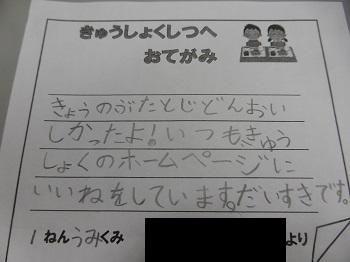 きゅうしょくしつへ
おてがみ
きょうのぶたとじどんおい
しかったよ！いつもきゅう
しょくのホームページに
いいねをしています。だいすきです。
1ねんうみくみ より